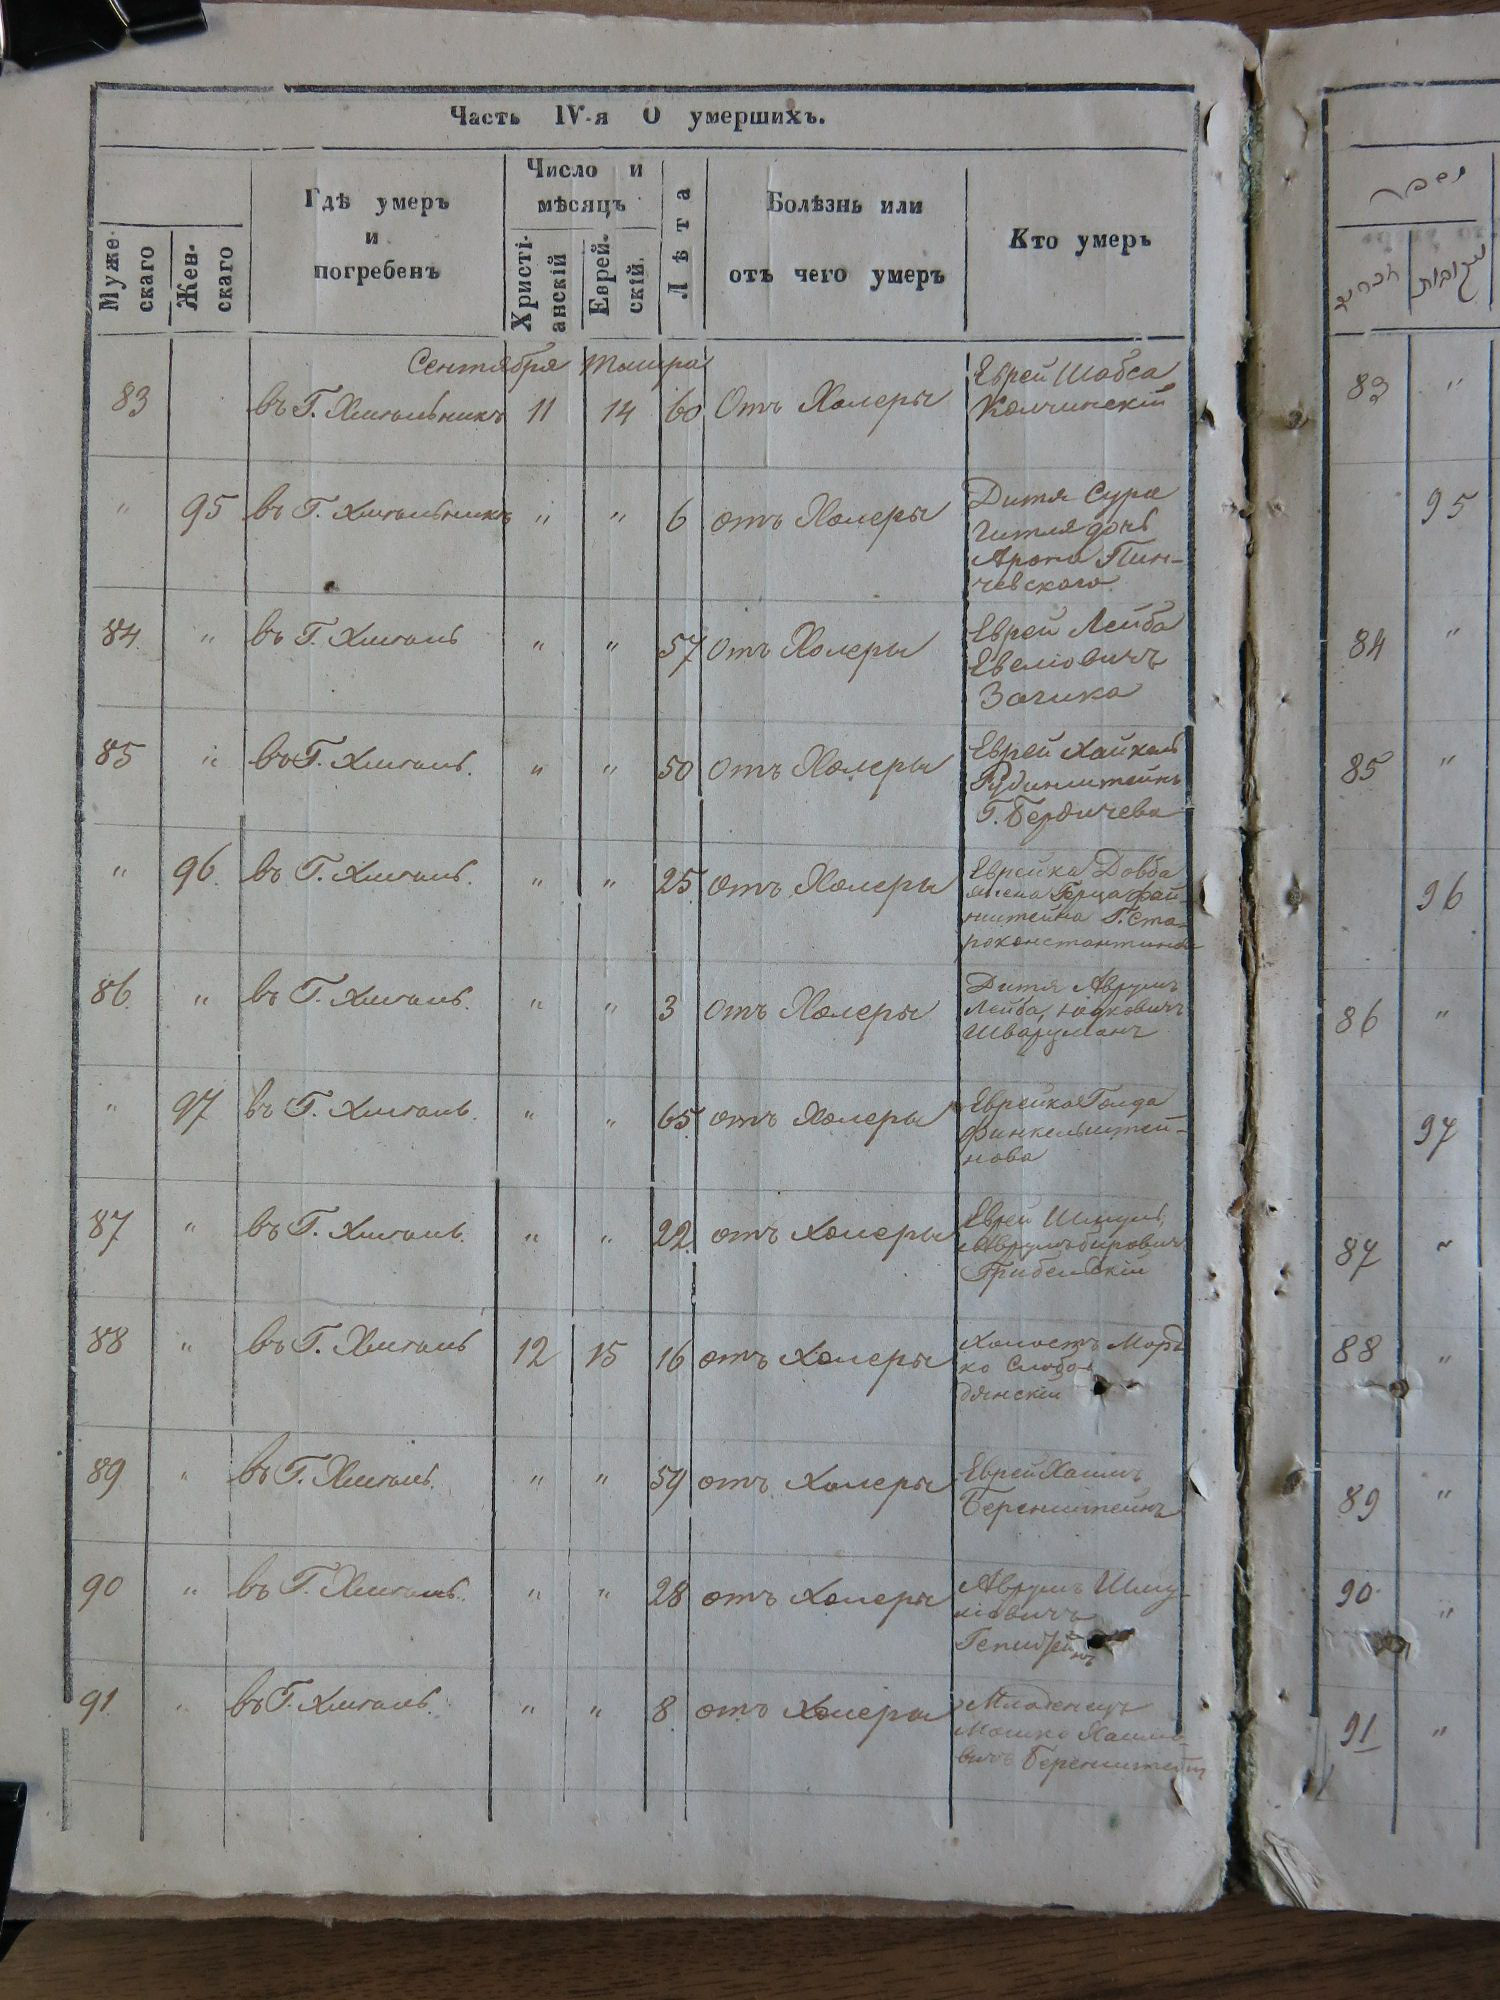 Часть IV-я О умершихъ.
Муже-
скаго
Жен-
скаго
Гдѣ умеръ
и
погребенъ
Число и
мѣсяцъ
Христі-
анскій
Еврей-
скій.
Лѣта
Болѣзнь или
отъ чего умеръ
Кто умеръ
Сентября Тишра
83 въ Г. Хмѣльникѣ 11 14 60 Отъ Холеры
Еврей Шабса
Колчинскій
" 95 въ Г. Хмѣльникѣ " " 6 отъ Холеры
Дитя Сура
Гитля дочь
Арона Пин-
чевскаго
84 " въ Г. Хмѣль " " 57 Отъ Холеры
Еврей Лейба
Евеліовичъ
Зачика
85 " въ Г. Хмѣль. " " 50 Отъ Холеры
Еврей Хайкель
Рубинштейнъ
Г. Бердичева
" 96 въ Г. Хмѣль. " " 25 Отъ Холеры
Еврейка Довба
жена Герца Фай-
нштейна Г. Ста-
роконстантинов
86 " въ Г. Хмѣль. " " 3 Отъ Холеры
Дитя Аврумъ
Лейба
Шварцманъ
" 97 въ Г. Хмѣль. " " 65 отъ Холеры
Еврейка Голда
Финкельштей-
нова
87 " въ Г. Хмѣль. " " 22 отъ Холеры
Еврей Шмуль
Грибельскій
88 " въ Г. Хмѣль 12 15 16 отъ Холеры
Холостъ Морд
ко Слобо-
дянскій
89 " въ Г. Хмѣль. " " 59 отъ Холеры
Еврей Хаимъ
Беренштейнъ
90 " въ Г. Хмѣль. " " 28 отъ Холеры
Аврумъ Шму-
ліовичъ
91 " въ Г. Хмѣль. " " 8 отъ Холеры
Младенецъ
Мошко Хаимо-
вичъ Беренштейн
מספר
נקבות
83 "
95
84 "
85 "
96
86 "
97
87 "
88 "
89 "
90 "
91 "